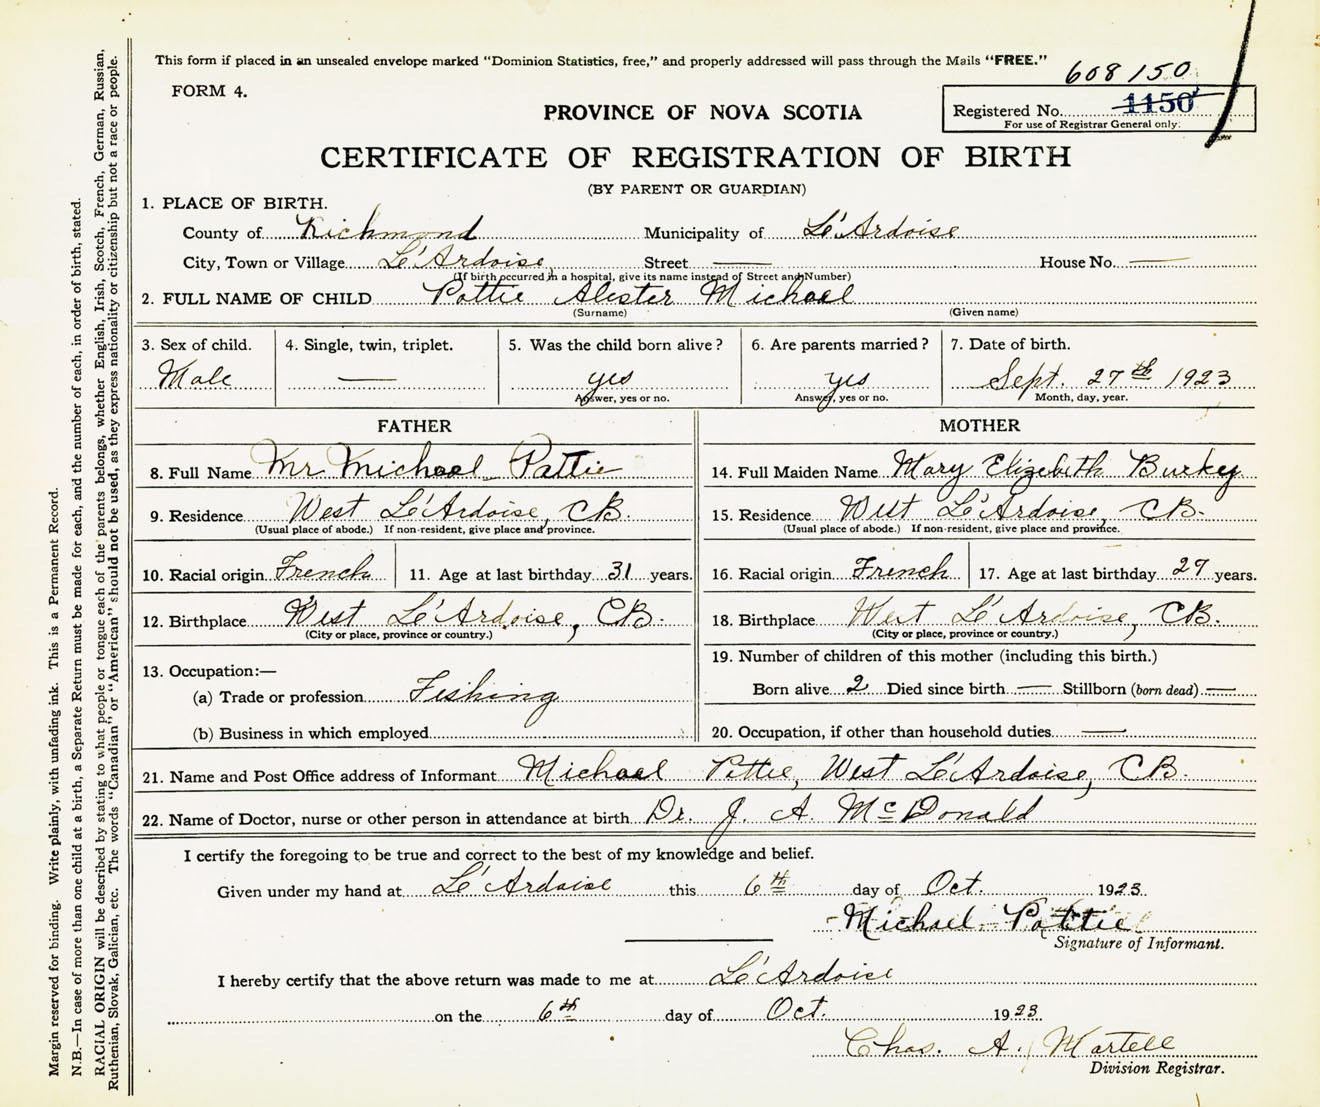 This form if placed in an unsealed envelope marked "Dominion Statistics, free," and properly addressed will pass through the Mails "FREE."
608150
FORM 4.
Registered No. 1150
For use of Registrar General only.
PROVINCE OF NOVA SCOTIA
CERTIFICATE OF REGISTRATION OF BIRTH
(BY PARENT OR GUARDIAN)
1. PLACE OF BIRTH.
County of Richmond Municipality of Le'Ardoise
City, Town or Village Le'Ardoise Street — House No. —
(If birth occurred in a hospital, give its name instead of Street and Number)
2. FULL NAME OF CHILD Pattie Alester Michael
(Surname) (Given name)
3. Sex of child. 4. Single, twin, triplet. 5. Was the child born alive? 6. Are parents married? 7. Date of birth.
Male — yes yes Sept. 27th 1923
Answer, yes or no. Answer, yes or no. Month, day, year.
FATHER MOTHER
8. Full Name Mr Michael Pattie 14. Full Maiden Name Mary Elizebeth Burkey
9. Residence West Le'Ardoise, CB. 15. Residence West Le'Ardoise, CB.
(Usual place of abode.) If non-resident, give place and province. (Usual place of abode.) If non-resident, give place and province.
10. Racial origin French 11. Age at last birthday 31 years. 16. Racial origin French 17. Age at last birthday 27 years.
12. Birthplace West Le'Ardoise, CB. 18. Birthplace West Le'Ardoise, CB.
(City or place, province or country.) (City or place, province or country.)
13. Occupation:— 19. Number of children of this mother (including this birth.)
(a) Trade or profession Fishing Born alive 2 Died since birth — Stillborn (born dead) —
(b) Business in which employed 20. Occupation, if other than household duties —
21. Name and Post Office address of Informant Michael Pattie, West Le'Ardoise, CB.
22. Name of Doctor, nurse or other person in attendance at birth Dr. J. A. McDonald
I certify the foregoing to be true and correct to the best of my knowledge and belief.
Given under my hand at Le'Ardoise this 6th day of Oct. 1923.
Michael Pattie
Signature of Informant.
I hereby certify that the above return was made to me at Le'Ardoise
on the 6th day of Oct. 1923.
Chas. A. Martell
Division Registrar.
Margin reserved for binding. Write plainly, with unfading ink. This is a Permanent Record.
N.B.—In case of more than one child at a birth, a Separate Return must be made for each, and the number of each, in order of birth, stated.
RACIAL ORIGIN will be described by stating to what people or tongue each of the parents belongs, whether English, Irish, Scotch, French, German, Russian,
Ruthenian, Slovak, Galician, etc. The words "Canadian" or "American" should not be used, as they express nationality or citizenship but not a race or people.